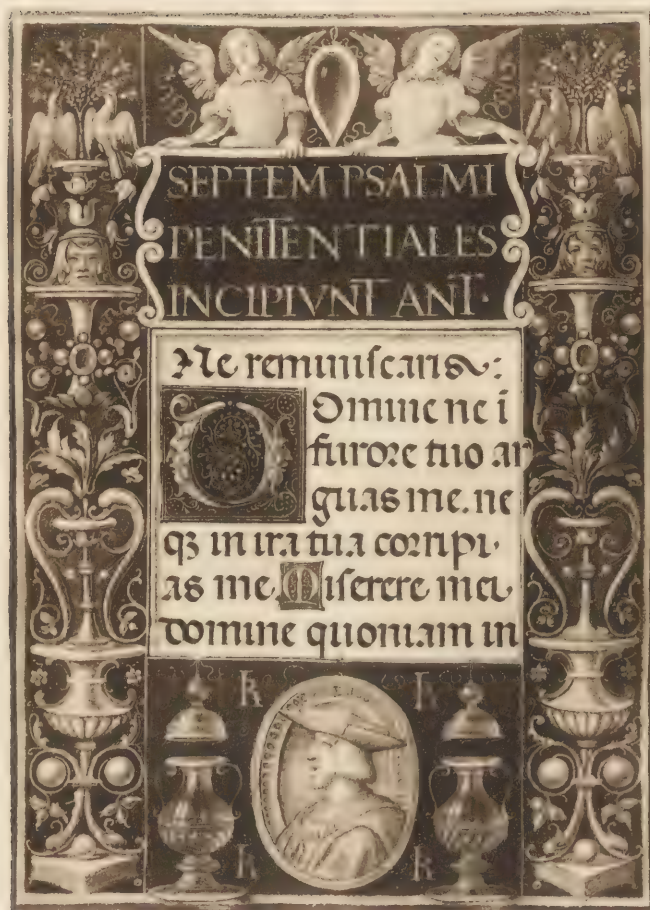 SEPTEM PSALMI
PENITENTIALES
INCIPIVNT ANT·
Ne reminiscaris:
Domine ne i
furore tuo ar
guas me. ne
qꝫ in ira tua corripi
as me. Miserere mei
domine quoniam in